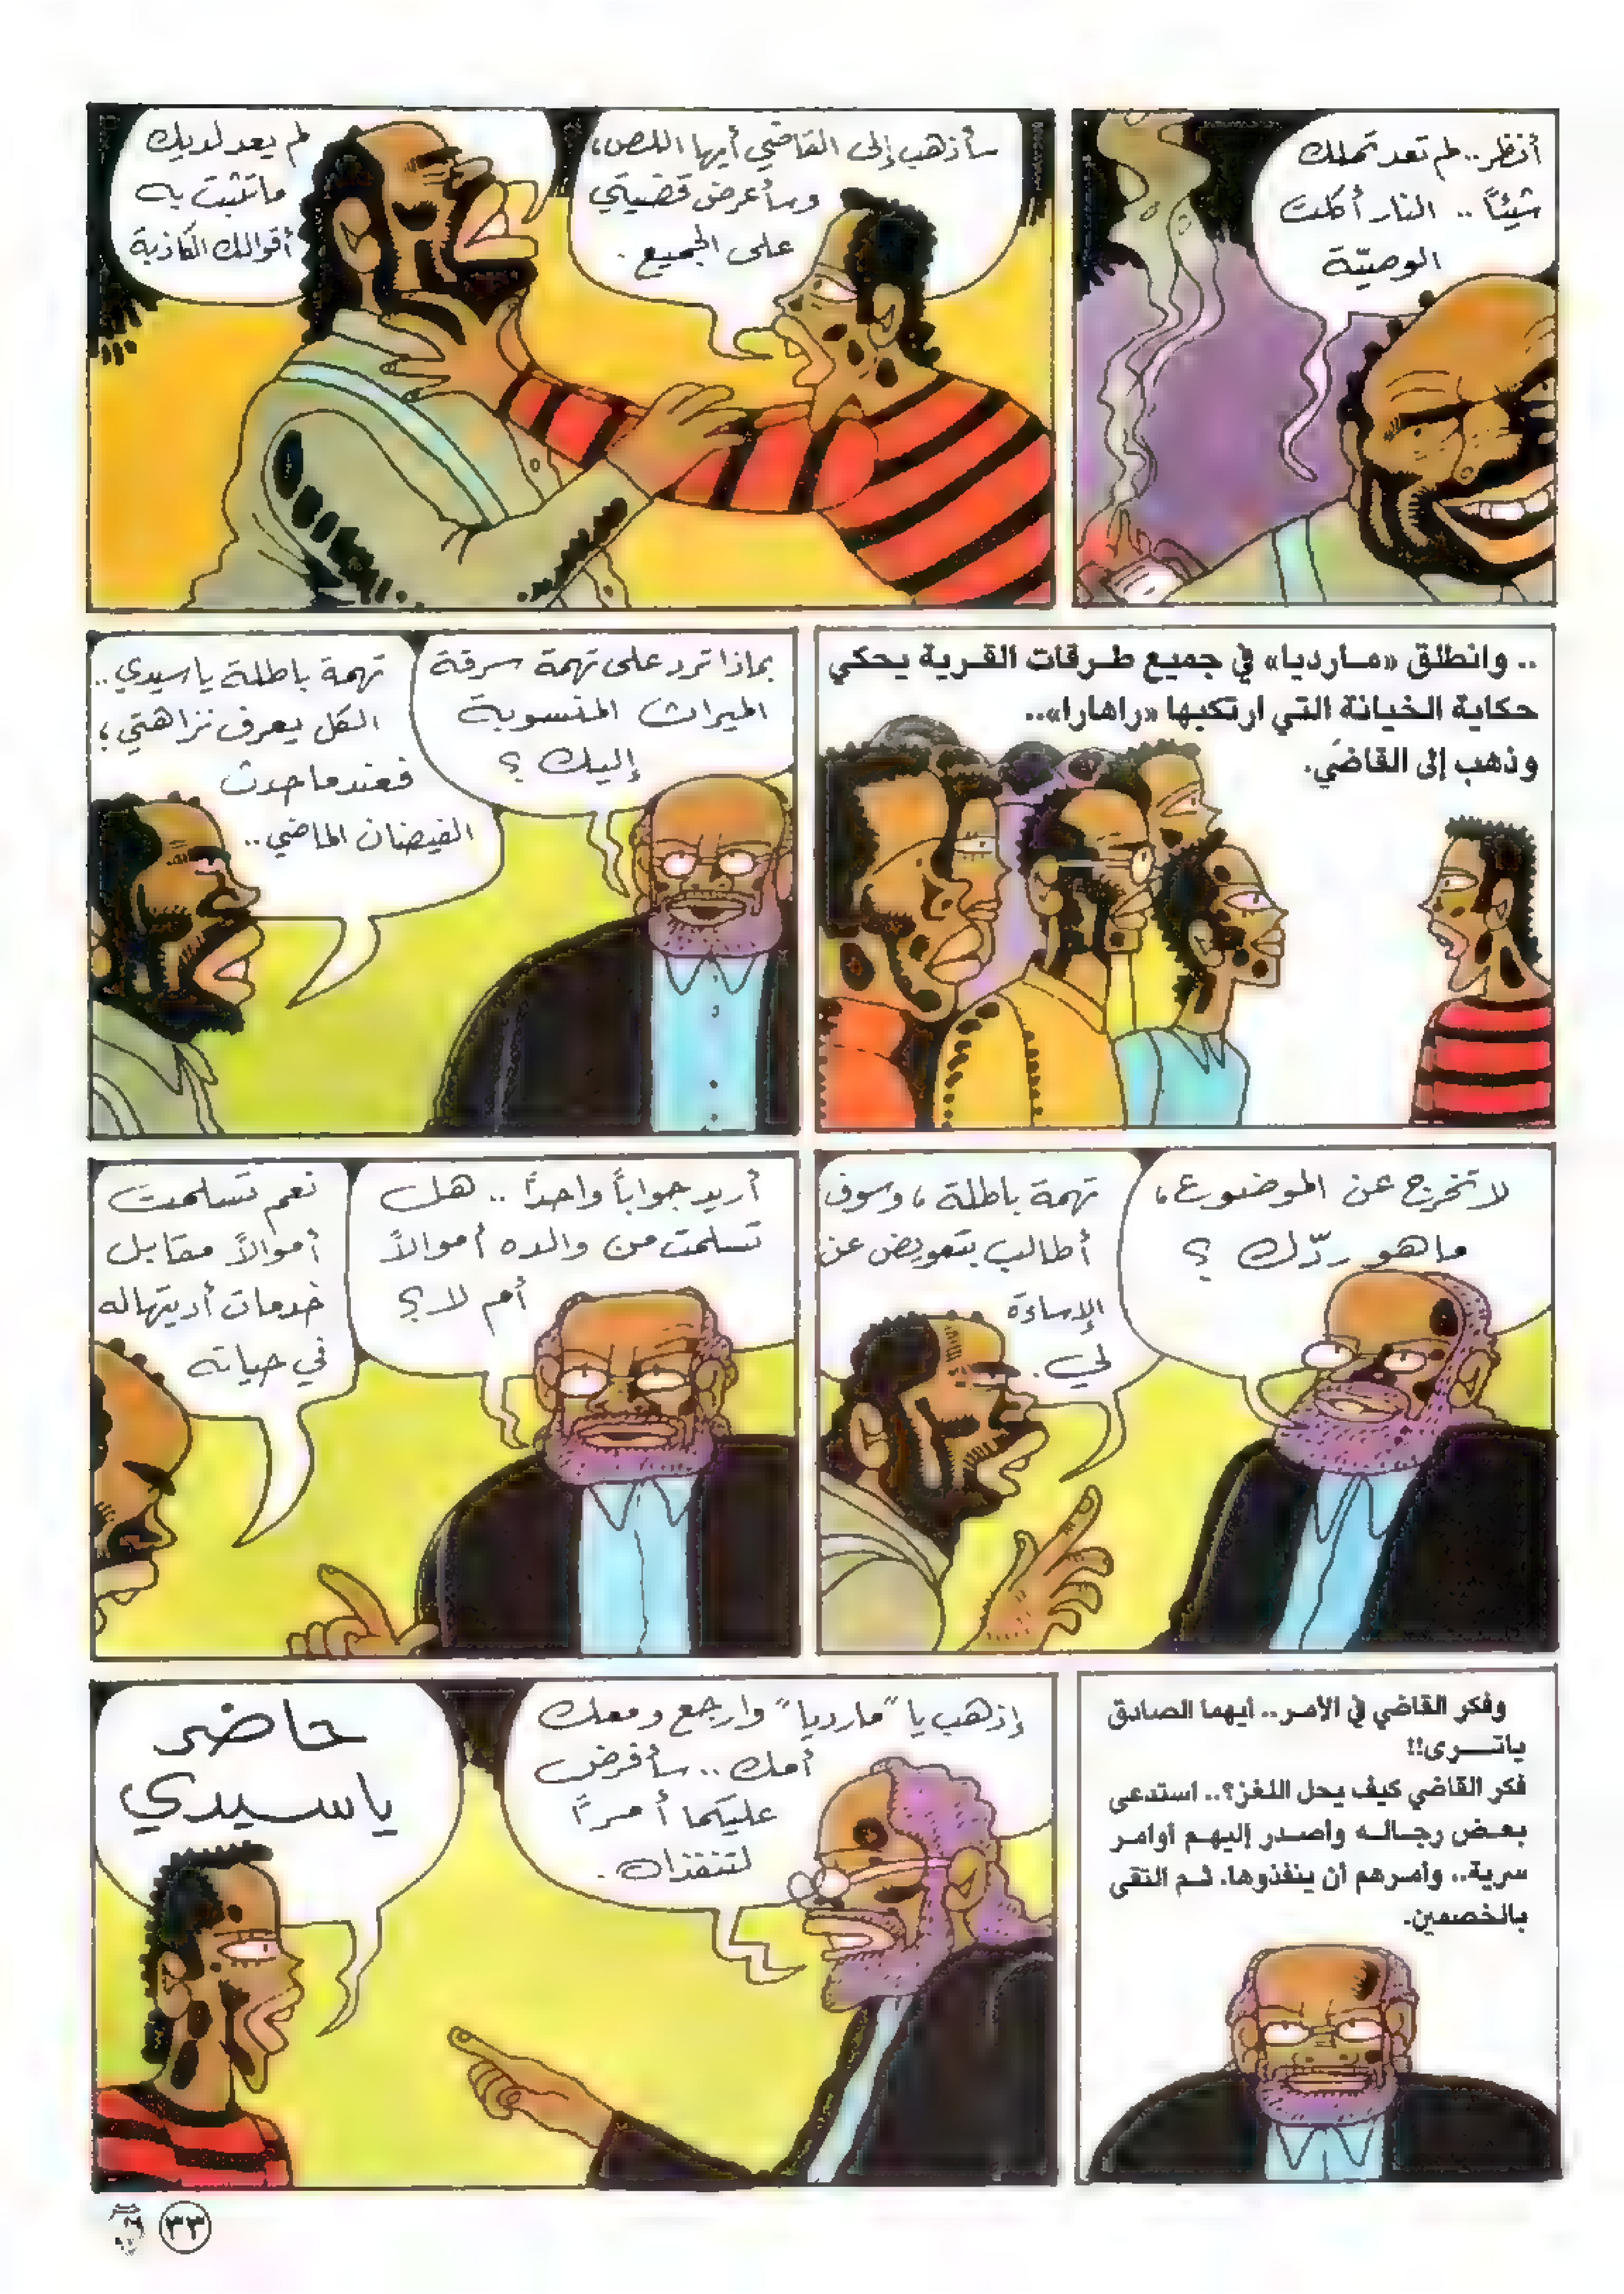 أنظر.. لم تعد تملك
شيئاً.. النار أكلت
الوصيّة
سأذهب إلى القاضي أيها اللص،
وسأعرض قضيتي
على الجميع.
لم يعد لديك
ما تثبت به
أقوالك الكاذبة
.. وانطلق «مارديا» في جميع طرقات القرية يحكي
حكاية الخيانة التي ارتكبها «راهارا»..
وذهب إلى القاضي.
بماذا ترد على تهمة سرقة
الميراث المنسوبة
إليك؟
تهمة باطلة يا سيدي..
الكل يعرف نزاهتي؛
فعندما حدث
الفيضان الماضي..
لا تخرج عن الموضوع،
ما هو ردّك؟
تهمة باطلة، وسوف
أطالب بتعويض عن
الإساءة
لي.
أريد جواباً واحداً.. هل
تسلمت من والده أموالاً
أم لا؟
نعم تسلمت
أموالاً مقابل
خدمات أديتها له
في حياته
وفكر القاضي في الأمر.. أيهما الصادق
ياتــرى!!
فكر القاضي كيف يحل اللغز؟.. استدعى
بعض رجاله وأصدر إليهم أوامر
سرية.. وأمرهم أن ينفذوها. ثم التقى
بالخصمين.
إذهب يا "مارديا" وارجع ومعك
أمك.. سأفرض
عليكما أمراً
لتنفذاه.
حاضر
ياسيدي
٣٣